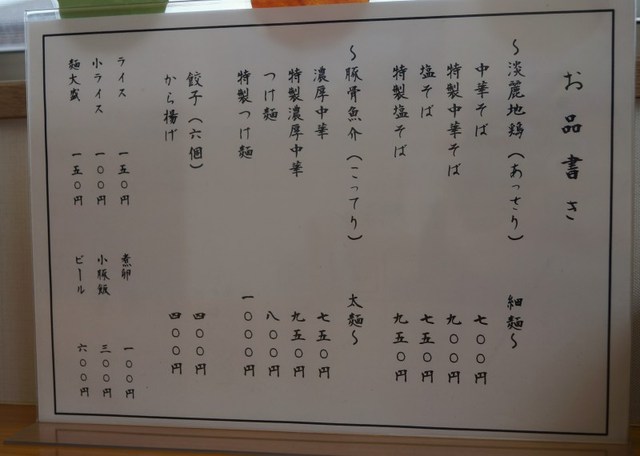 お品書き
～淡麗地鶏（あっさり） 細麺～
中華そば 七〇〇円
特製中華そば 九〇〇円
塩そば 七五〇円
特製塩そば 九五〇円
～豚骨魚介（こってり） 太麺～
濃厚中華 七五〇円
特製濃厚中華 九五〇円
つけ麺 八〇〇円
特製つけ麺 一〇〇〇円
餃子（六個） 四〇〇円
から揚げ 四〇〇円
ライス 一五〇円 煮卵 一〇〇円
小ライス 一〇〇円 小豚飯 三〇〇円
麺大盛 一五〇円 ビール 六〇〇円